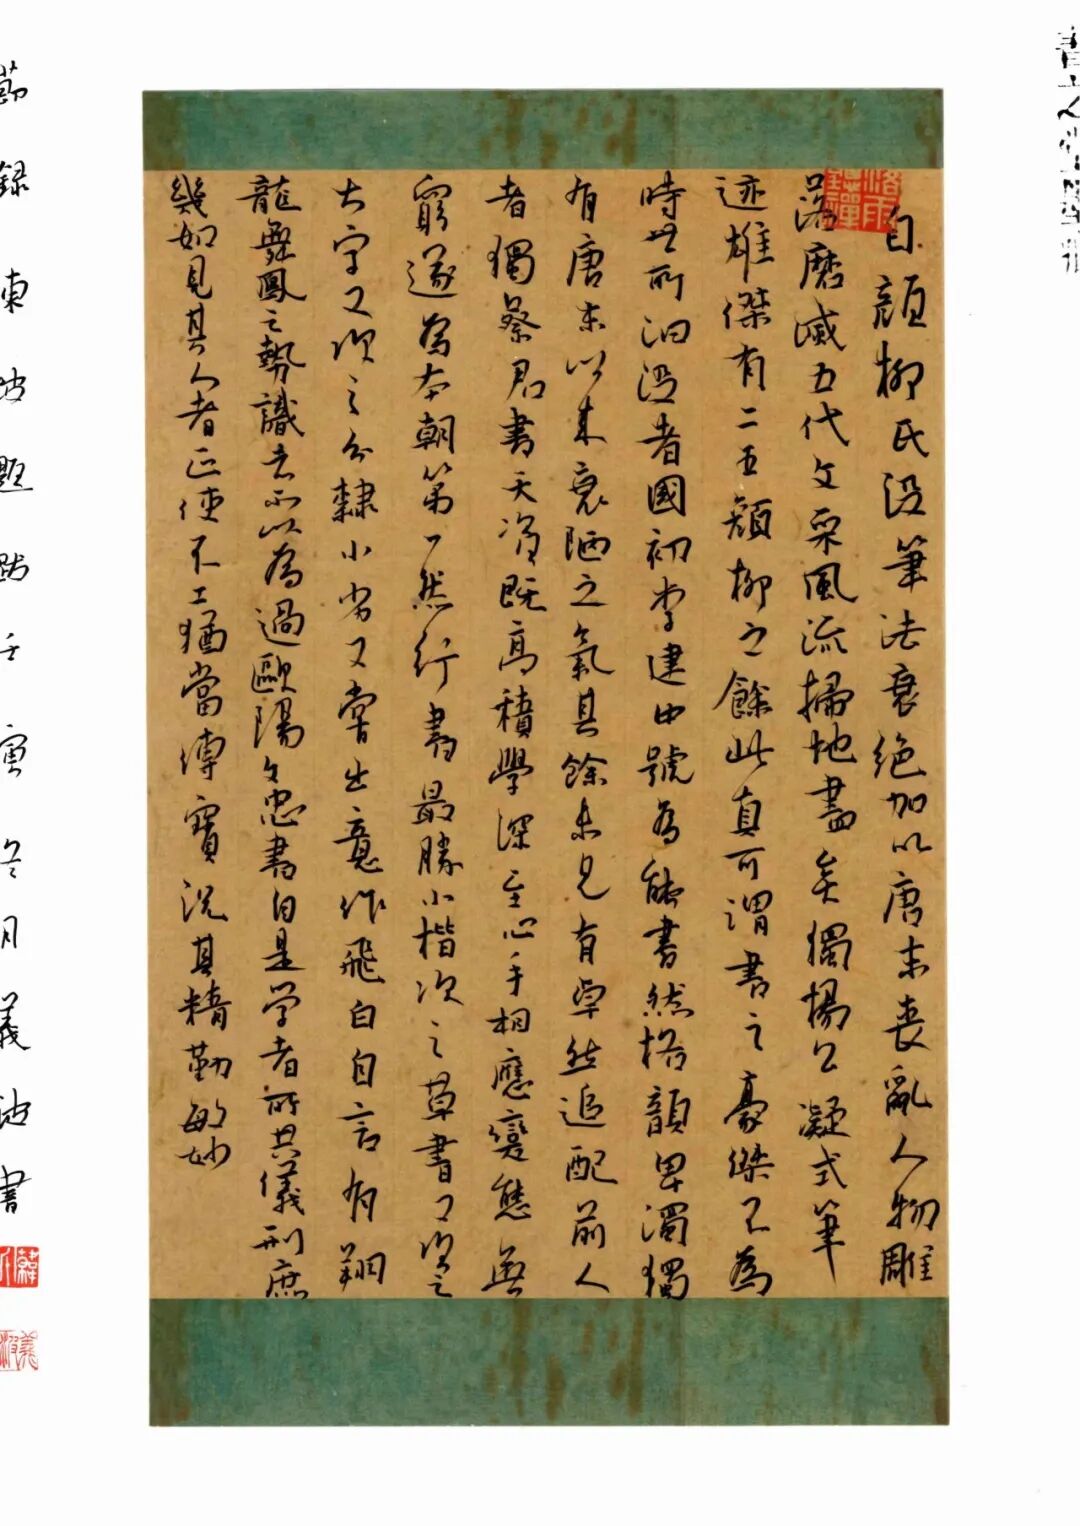 自顏柳氏沒筆法衰絕加以唐末喪亂人物雕
落磨滅五代文采風流掃地盡矣獨楊公凝式筆
迹雄傑有二王顏柳之餘此真可謂書之豪傑不為
時世所汩沒者國初李建中號為能書然格韻卑濁獨
有唐末以來衰陋之氣其餘未見有卓然追配前人
者獨蔡君書天資既高積學深至心手相應變態無
窮遂為本朝第一然行書最勝小楷次之草書又次之
大字又次之分隸小劣又嘗出意作飛白自言有翔
龍舞鳳之勢識者不以為過歐陽文忠書自是學者所共儀刑庶
幾如見其人者正使不工猶當傳寶況其精勤敏妙
節錄東坡題跋壬寅冬月義波書